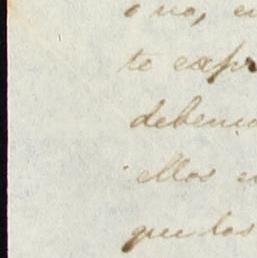 o no, e
te exp
debemo
ellos e
que los